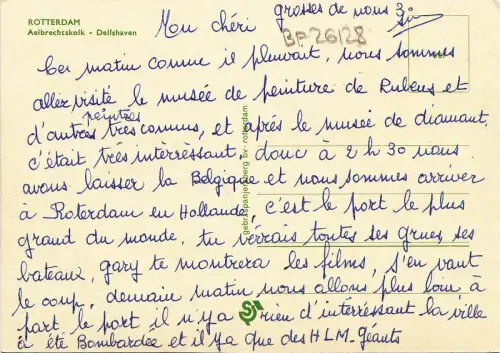 ROTTERDAM
Aelbrechtskolk - Delfshaven
grosses de nous 3
Mon chéri
BP 26/28
Ce matin comme il pleuvait, nous sommes
aller visité le musée de peinture de Rubens et
peintres
d'autres très connus, et après le musée de diamant.
c'était très interréssant, donc à 2 h 30 nous
avons laisser la Belgique et nous sommes arriver
à Roterdam en Hollande, c'est le port le plus
grand du monde, tu verrais toutes ses grues, ses
bateaux, gary te montrera les films, s'en vaut
le coup, demain matin nous allons plus loin, à
part le port il n'y a rien d'intérréssant la ville
à été Bombardée et il y a que des HLM-Géants
gebr. spanjersberg bv - rotterdam
S